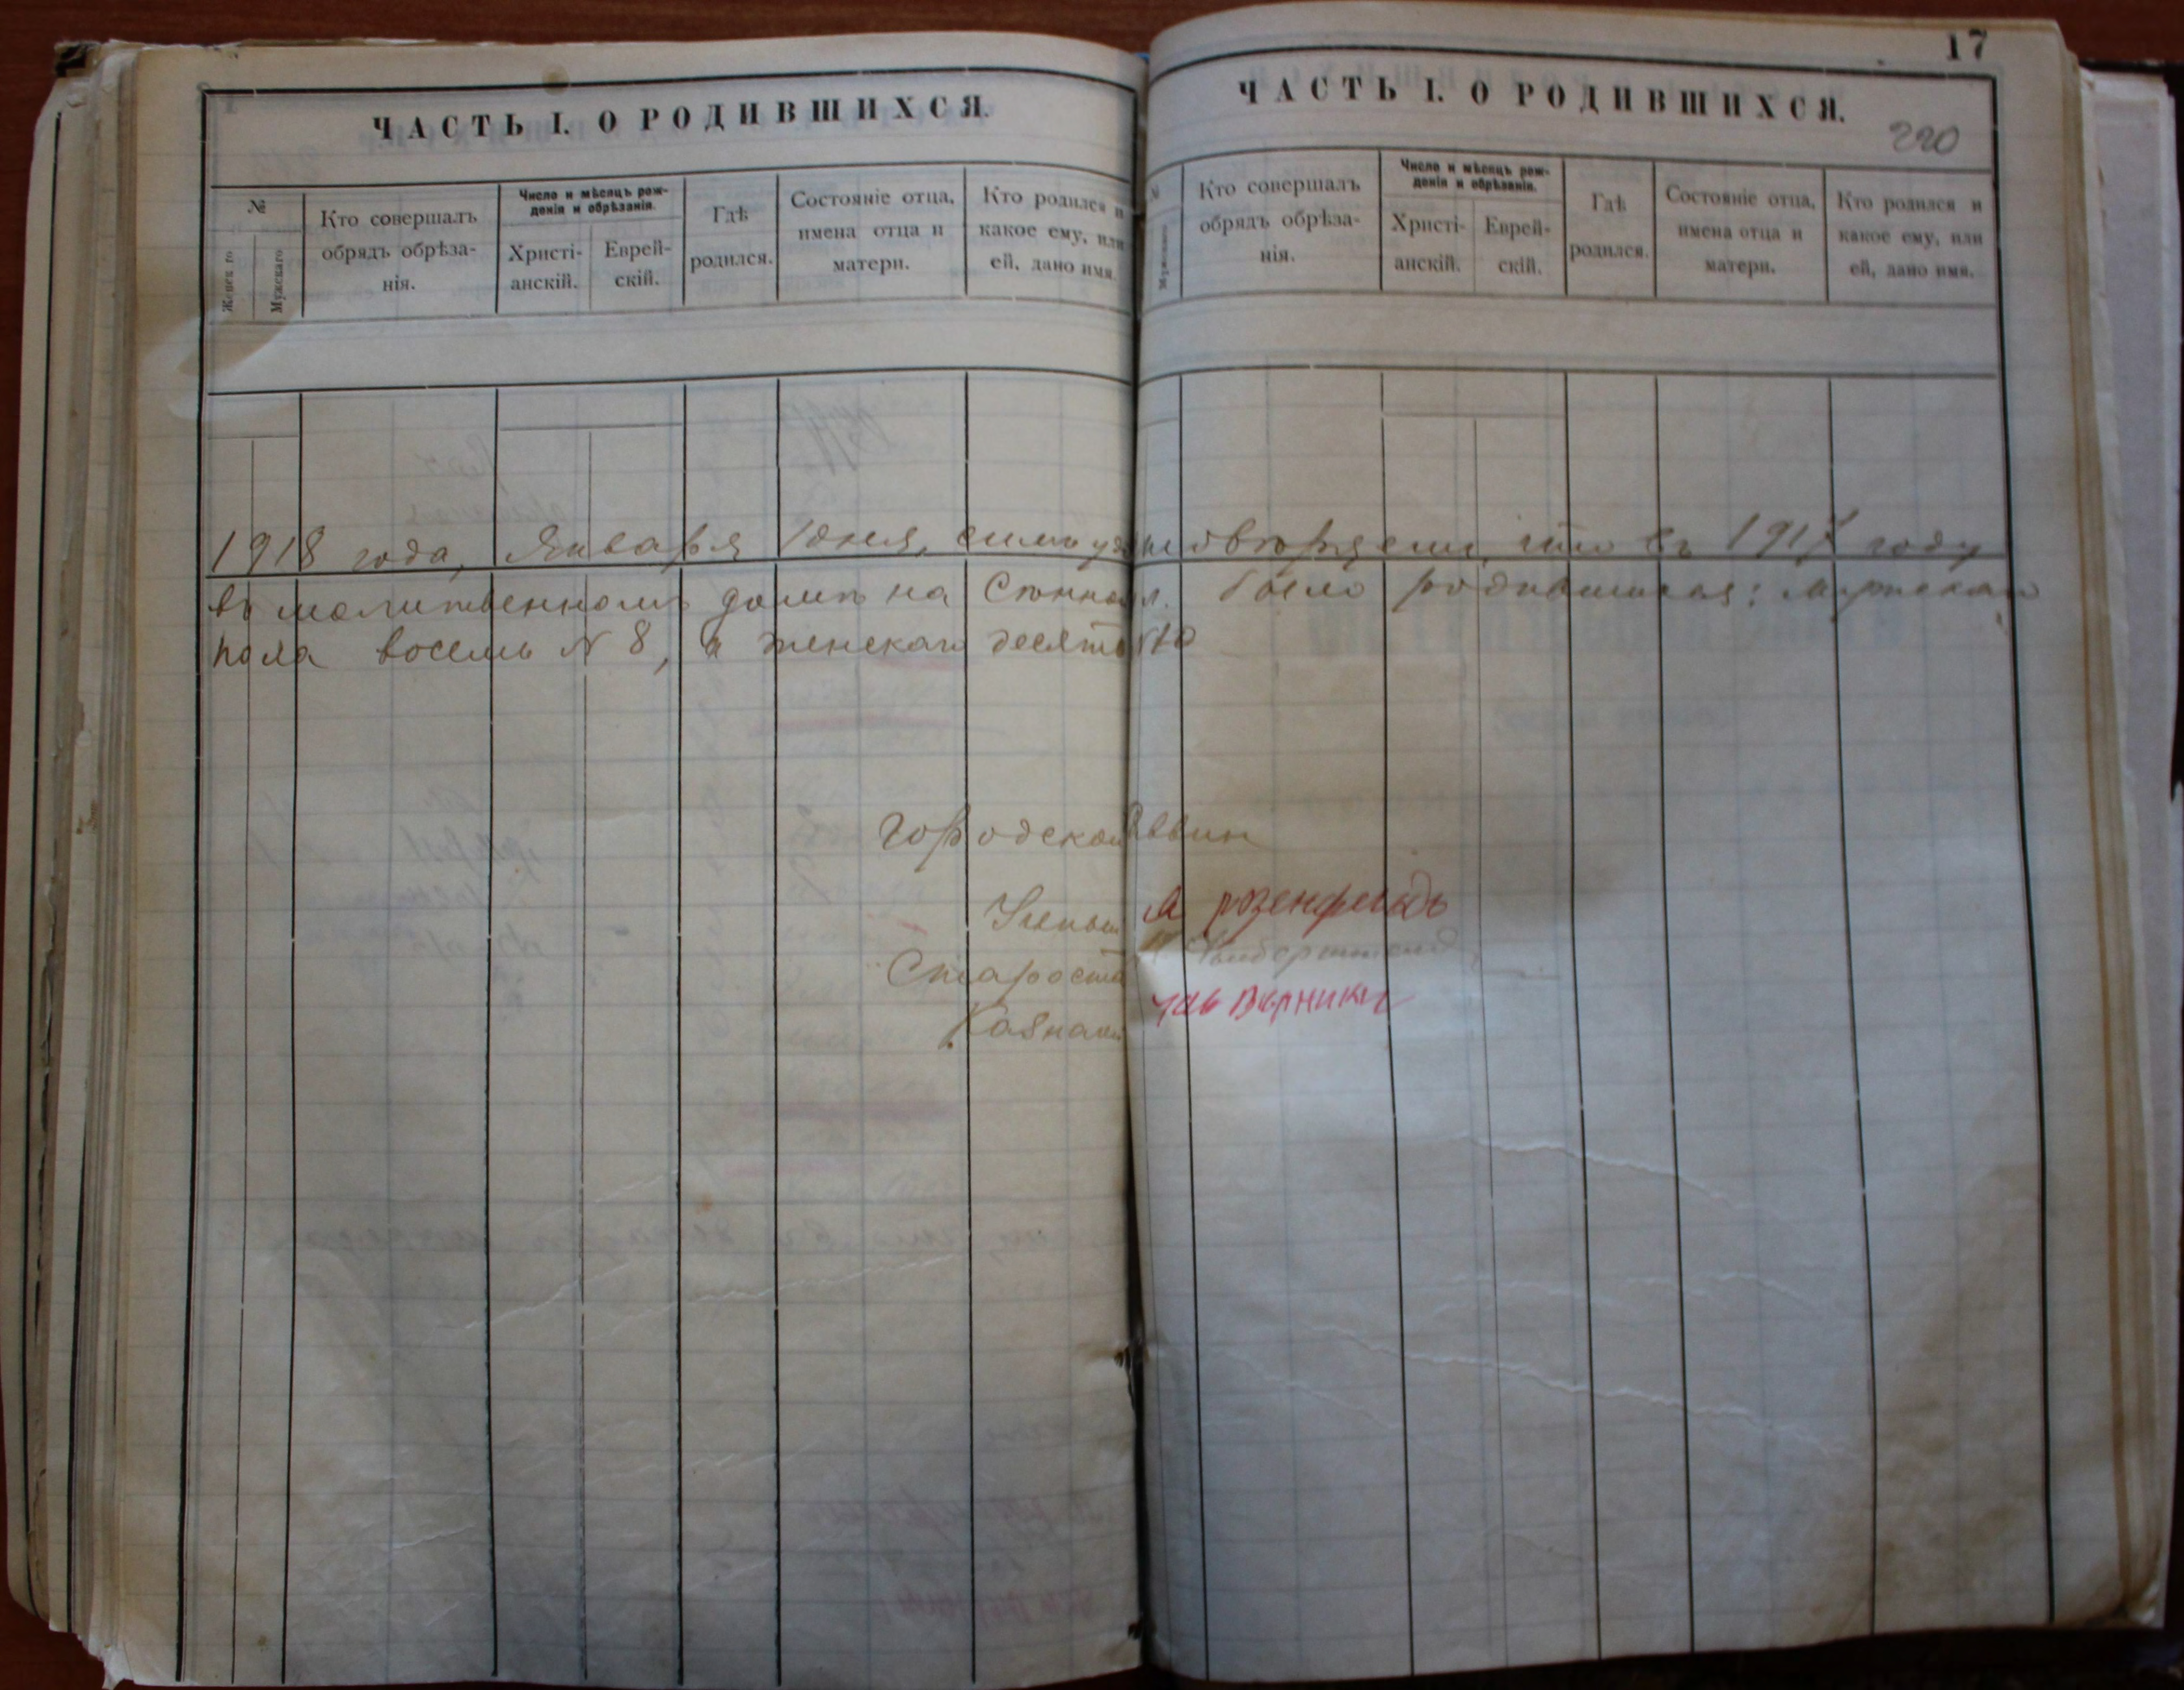 17
ЧАСТЬ I. О РОДИВШИХСЯ.
№
Женск го
Мужскаго
Кто совершалъ
обрядъ обрѣза-
нія.
Число и мѣсяцъ рож-
денія и обрѣзанія.
Христі-
анскій.
Еврей-
скій.
Гдѣ
родился.
Состояніе отца,
имена отца и
матери.
Кто родился и
какое ему, или
ей, дано имя.
ЧАСТЬ I. О РОДИВШИХСЯ.
220
№
Мужскаго
Кто совершалъ
обрядъ обрѣза-
нія.
Число и мѣсяцъ рож-
денія и обрѣзанія.
Христі-
анскій.
Еврей-
скій.
Гдѣ
родился.
Состояніе отца,
имена отца и
матери.
Кто родился и
какое ему, или
ей, дано имя.
1918 года, Января 1 дня, симъ что въ 1917 году
въ молитвенномъ домѣ на было родившихся: мужскаго
пола восемь № 8, и женскаго десять №10
Городской Раввин
Ученый М Розенфельдъ
Староста
Казначей